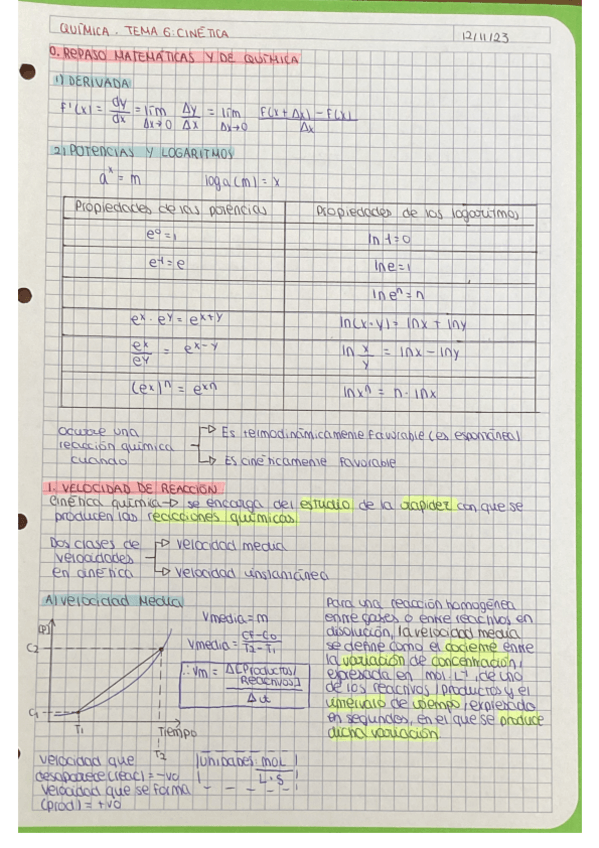 QUÍMICA. TEMA 6: CINÉTICA
12/11/23
0. REPASO MATEMÁTICAS Y DE QUÍMICA
1) DERIVADA
F'(x) = dy/dx = lím Δx→0 Δy/Δx = lím Δx→0 F(x+Δx)-F(x)/Δx
2) POTENCIAS Y LOGARITMOS
a^x = m loga(m) = x
Propiedades de las potencias Propiedades de los logaritmos
e^0 = 1 ln 1 = 0
e^1 = e ln e = 1
ln e^n = n
e^x · e^y = e^x+y ln(x·y) = lnx + lny
e^x/e^y = e^x-y ln x/y = lnx - lny
(e^x)^n = e^xn lnx^n = n · lnx
ocurre una
reacción química
cuando
→ Es termodinámicamente favorable (es espontánea)
→ Es cinéticamente favorable
1. VELOCIDAD DE REACCIÓN
Cinética química → se encarga del estudio de la rapidez con que se
producen las reacciones químicas
Dos clases de
velocidades
en cinética
→ velocidad media
→ velocidad instantánea
A) Velocidad Media
[P]
C2
C1
T1
T2
Tiempo
Vmedia = m
Vmedia = CF-C0/T2-T1
∴ Vm = Δ[Productos/Reactivos]/Δt
Para una reacción homogénea
entre gases o entre reactivos en
disolución, la velocidad media
se define como el cociente entre
la variación de concentración,
expresada en mol·L⁻¹, de uno
de los reactivos/productos y el
intervalo de tiempo, expresado
en segundos, en el que se produce
dicha variación.
velocidad que
desaparece (reac) = -vo
velocidad que se forma
(prod) = +vo
Unidades: mol/L·s